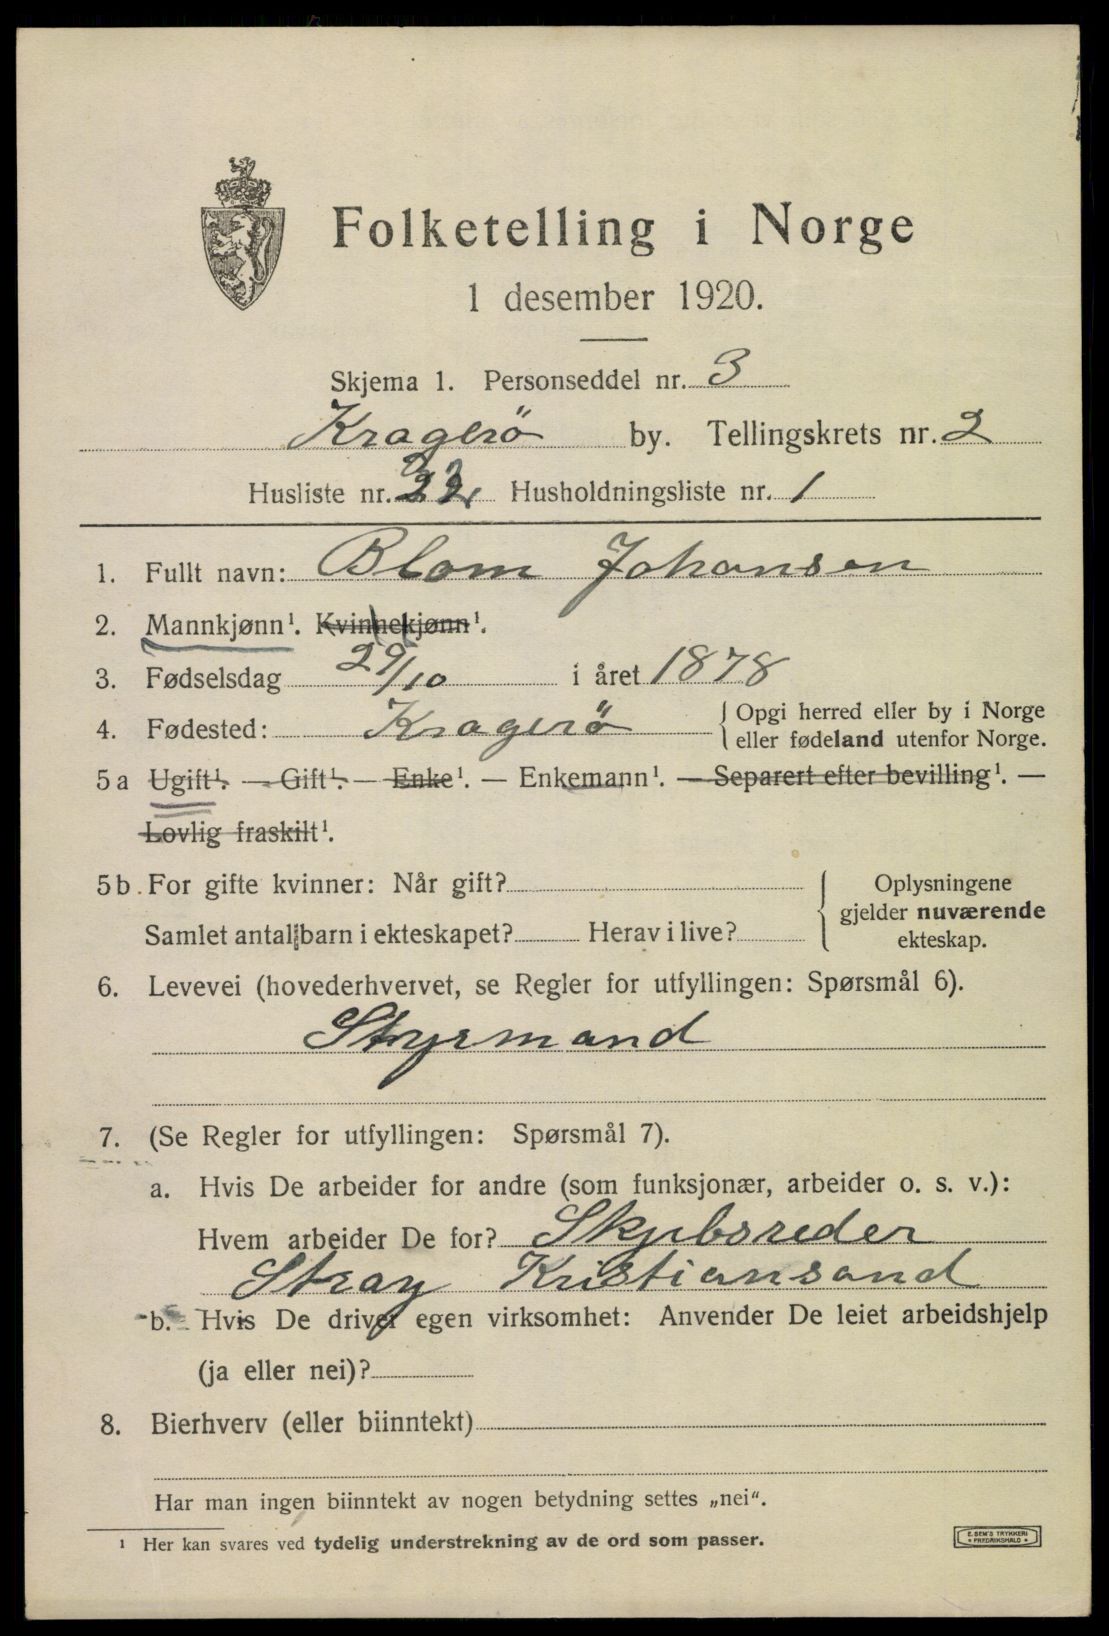 Folketelling i Norge
1 desember 1920.
Skjema 1. Personseddel nr. 3
Kragerø by. Tellingskrets nr. 2
Husliste nr. Husholdningsliste nr. 1
1. Fullt navn: Blom Johansen
2. Mannkjønn¹. Kvinnekjønn¹.
3. Fødselsdag 29/10 i året 1878
4. Fødested: Kragerø { Opgi herred eller by i Norge
eller fødeland utenfor Norge.
5a Ugift¹. — Gift¹. — Enke¹. — Enkemann¹. — Separert efter bevilling¹. —
Lovlig fraskilt¹.
5b. For gifte kvinner: Når gift?
Samlet antal barn i ekteskapet? Herav i live?
Oplysningene
gjelder nuværende
ekteskap.
6. Levevei (hovederhvervet, se Regler for utfyllingen: Spørsmål 6).
Styrmand
7. (Se Regler for utfyllingen: Spørsmål 7).
a. Hvis De arbeider for andre (som funksjonær, arbeider o. s. v.):
Hvem arbeider De for? Skjibsreder
Stray Kristiansand
b. Hvis De driver egen virksomhet: Anvender De leiet arbeidshjelp
(ja eller nei)?
8. Bierhverv (eller biinntekt)
Har man ingen biinntekt av nogen betydning settes „nei".
¹ Her kan svares ved tydelig understrekning av de ord som passer.
E. SEM'S TRYKKERI
* FREDRIKSHALD *